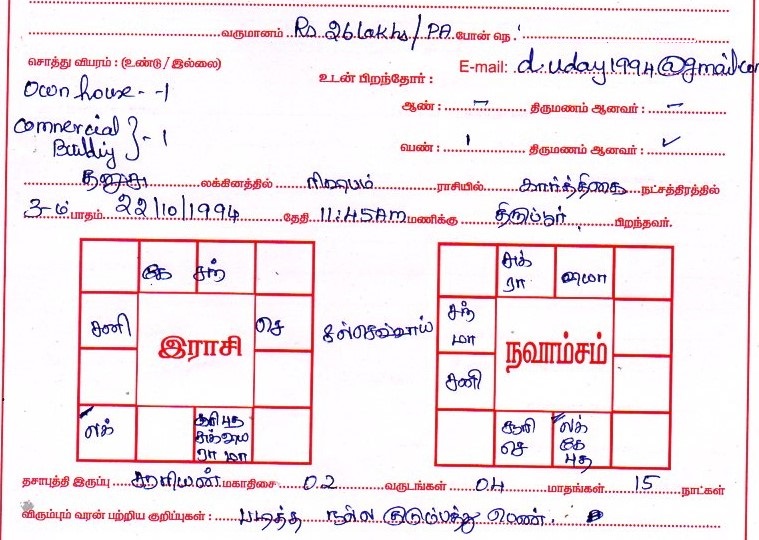 வருமானம் Rs 26 Lakhs / PA போன் நெ
சொத்து விபரம் : (உண்டு / இல்லை) உடன் பிறந்தோர் : E-mail: d.uday1994@gmail.com
Own house - 1
ஆண் : – திருமணம் ஆனவர் : –
Commercial Building } - 1
பெண் : 1 திருமணம் ஆனவர் : ✓
தனுசு லக்கினத்தில் ரிஷபம் ராசியில் கார்த்திகை நட்சத்திரத்தில்
3-ம் பாதம் 22/10/1994 தேதி 11:45 Am மணிக்கு திருப்பூர் பிறந்தவர்.
கே சந்
சனி செ
இராசி
லக்
ரா மா
செவ்வாய்
சுக் ரா
சந் மா
நவாம்சம்
சனி
செ
லக் கே புத
தசாபுத்தி இருப்பு சூரியன் மகாதிசை 02 வருடங்கள் 04 மாதங்கள் 15 நாட்கள்
விரும்பும் வரன் பற்றிய குறிப்புகள் : படித்த நல்ல குடும்பத்து பெண்.